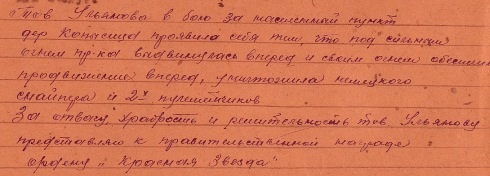 "Тов Ульянова в бою за населенный пункт
дер Копасица проявила себя тем, что под сильным
огнем пр-ка выдвинулась вперед и своим огнем обеспеч
продвижение вперед, уничтожила немецкого
снайпера и 2х пулеметчиков
За отвагу храбрость и решительность тов. Ульянову
представляю к правительственной награде
ордену "Красная Звезда"